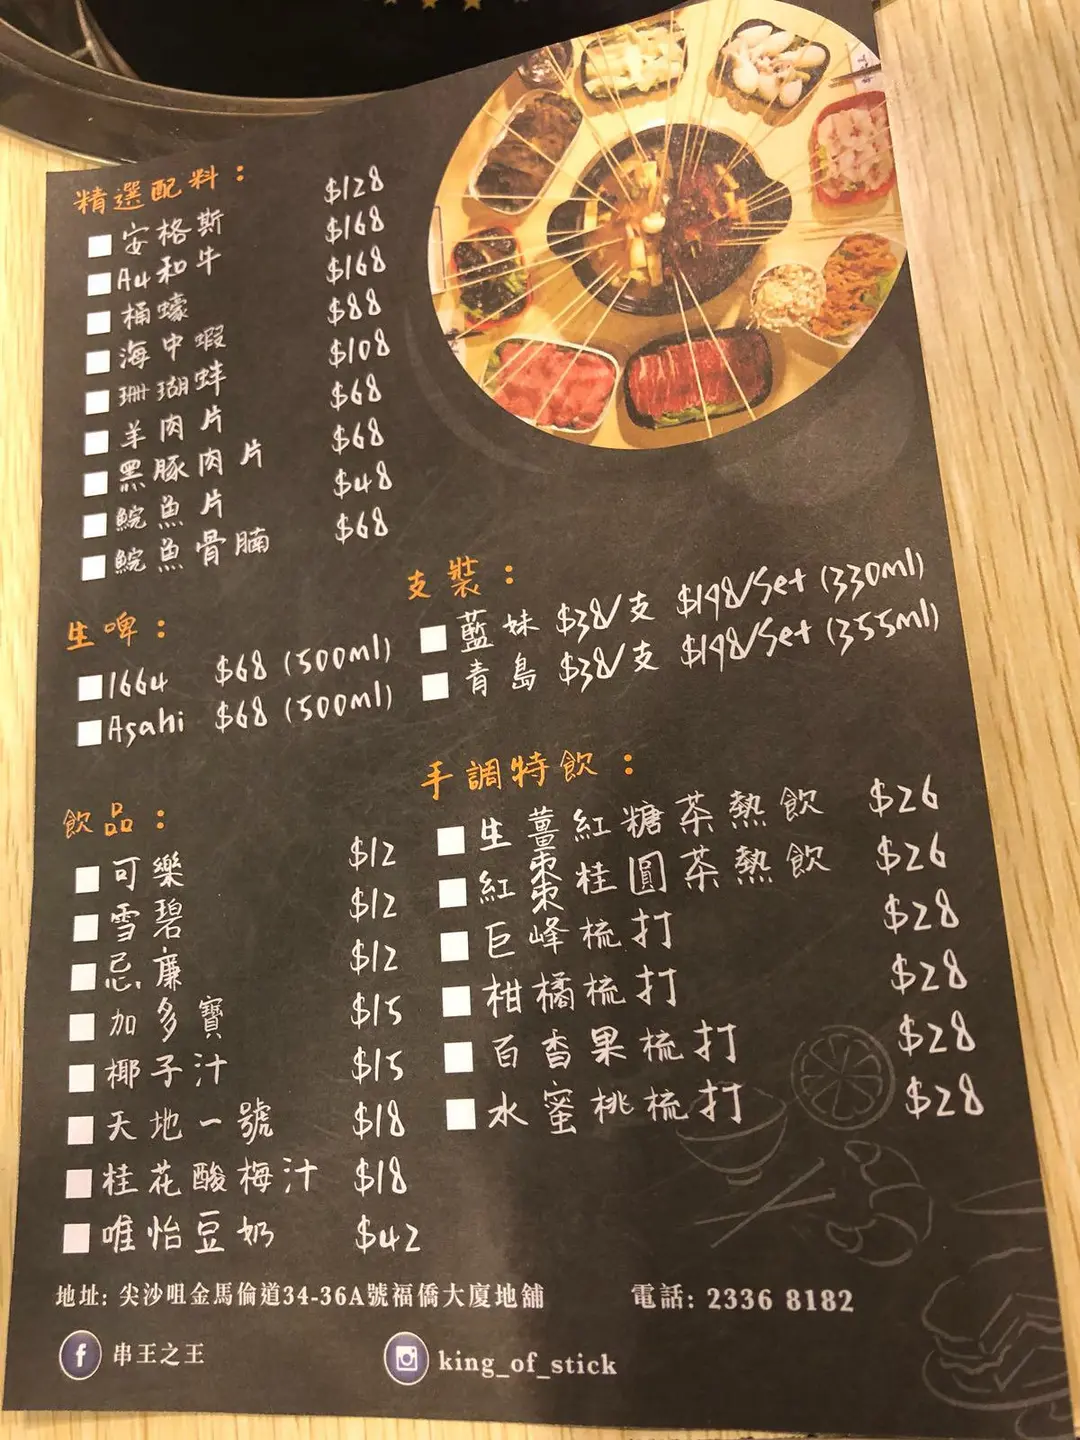 精選配料：
安格斯 $128
A4和牛 $168
桶蠔 $168
海中蝦 $88
珊瑚蚌 $108
羊肉片 $68
黑豚肉片 $68
鯇魚片 $48
鯇魚骨腩 $68
生啤：
1664 $68 (500ml)
Asahi $68 (500ml)
支裝：
藍妹 $38/支 $198/Set (330ml)
青島 $38/支 $198/Set (355ml)
飲品：
可樂 $12
雪碧 $12
忌廉 $12
加多寶 $15
椰子汁 $15
天地一號 $18
桂花酸梅汁 $18
唯怡豆奶 $42
手調特飲：
生薑紅糖茶熱飲 $26
紅棗桂圓茶熱飲 $26
巨峰梳打 $28
柑橘梳打 $28
百香果梳打 $28
水蜜桃梳打 $28
地址: 尖沙咀金馬倫道34-36A號福僑大廈地舖 電話: 2336 8182
串王之王
king_of_stick